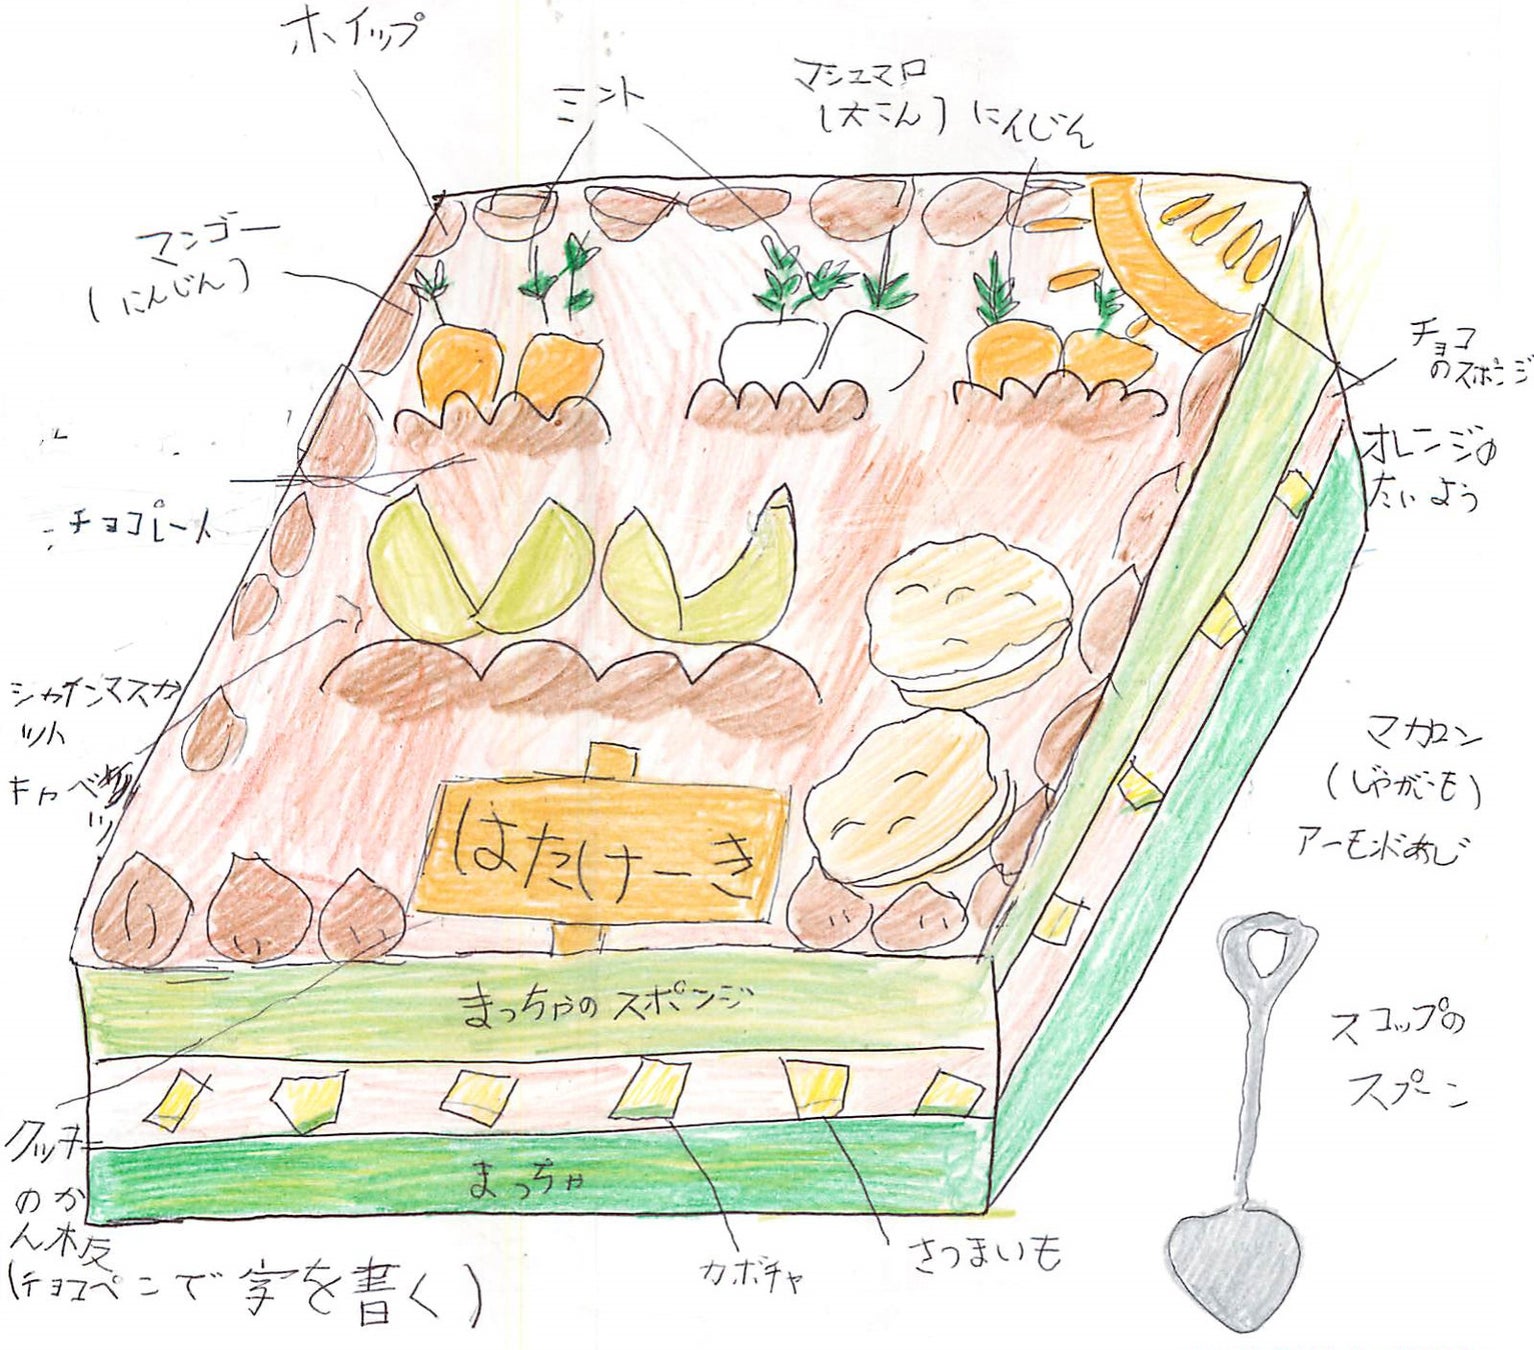 ホイップ
ミント
マシュマロ
(大こん) にんじん
マンゴー
(にんじん)
チョコ
のスポンジ
オレンジの
たいよう
チョコレート
シャインマスカ
ット
キャベツ
マカロン
(じゃがいも)
アーモンドあじ
はたけーき
まっちゃのスポンジ
スコップの
スプーン
まっちゃ
クッキー
のか
ん板
(チョコペンで字を書く)
カボチャ
さつまいも